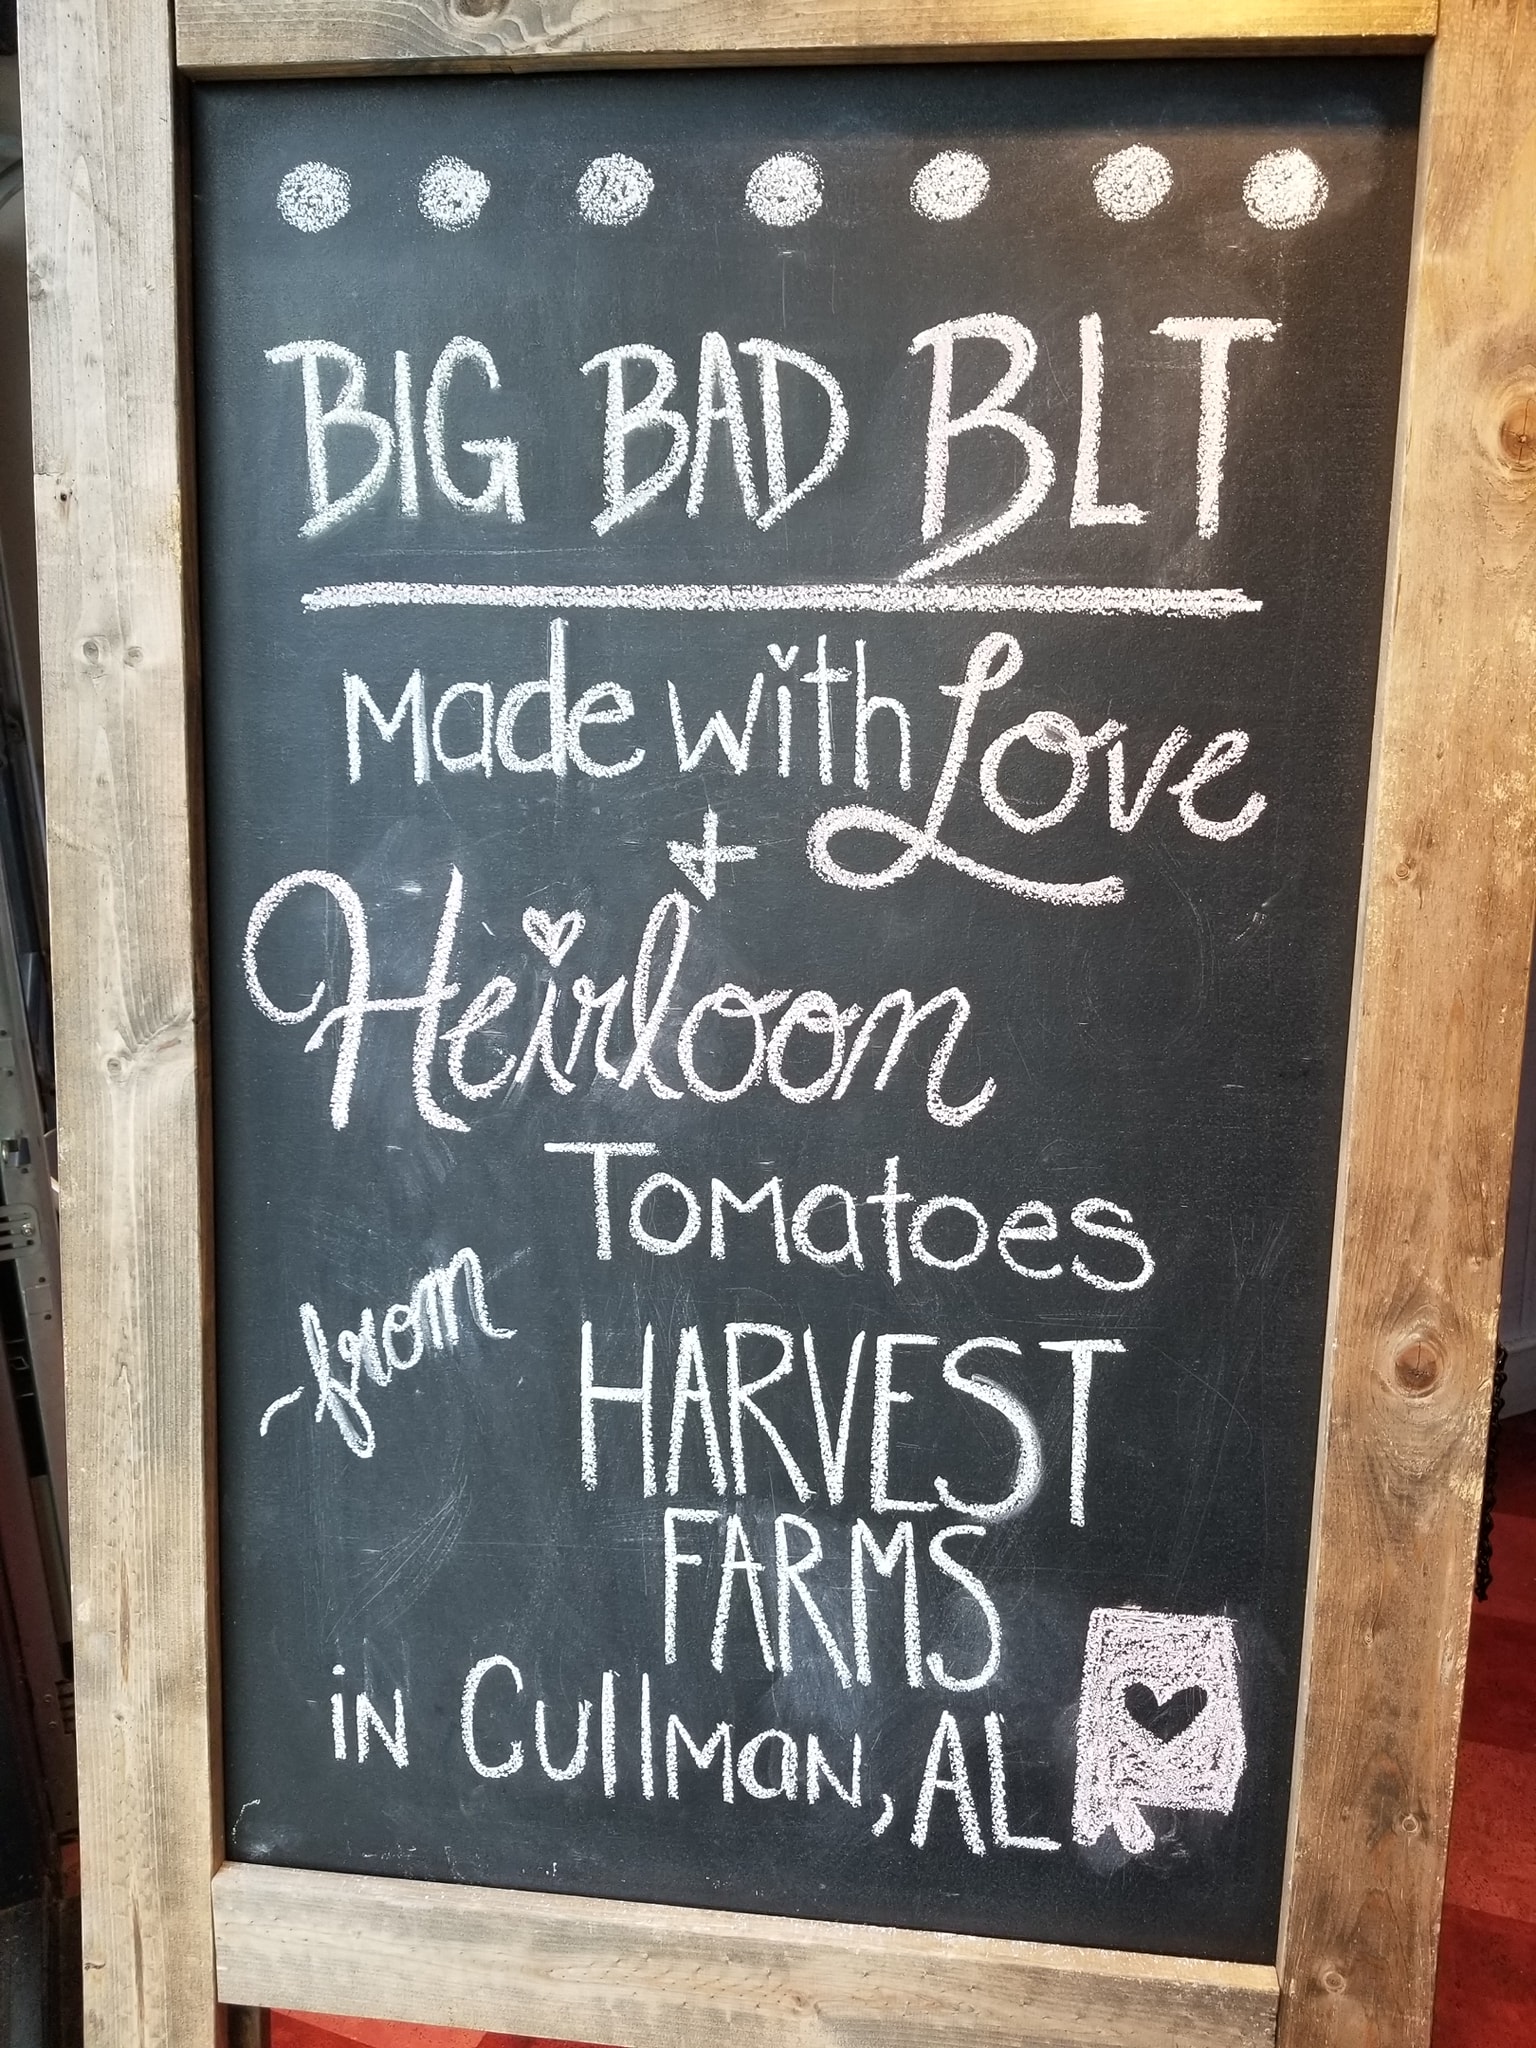 BIG BAD BLT
Made with Love
+
Heirloom
Tomatoes
-from
HARVEST
FARMS
in Cullman, AL